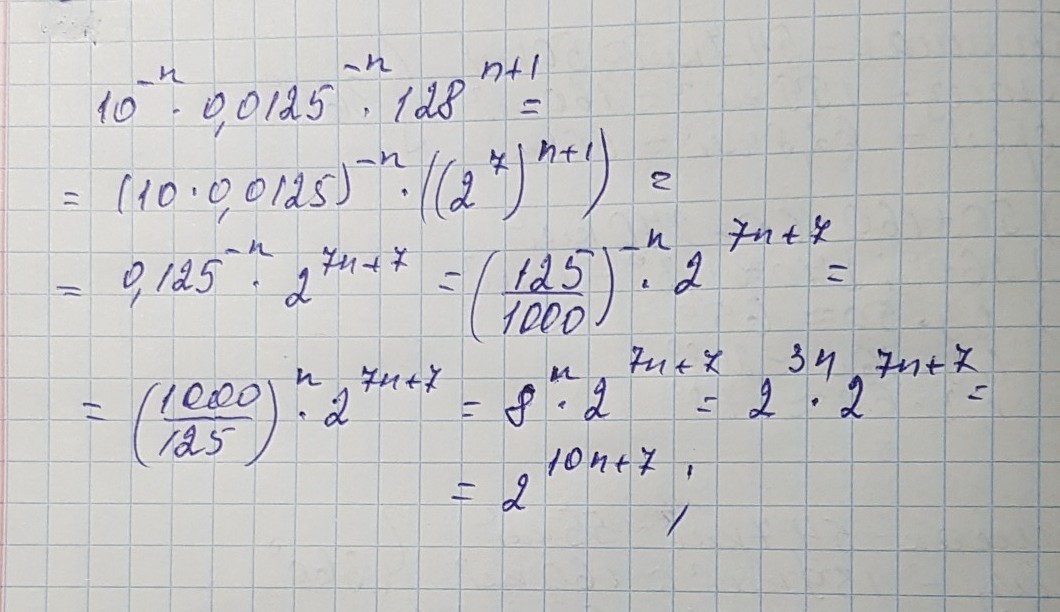 10^{-n} · 0,0125^{-n} · 128^{n+1} =
= (10 · 0,0125)^{-n} · ((2^7)^{n+1}) =
= 0,125^{-n} · 2^{7n+7} = (125/1000)^{-n} · 2^{7n+7} =
= (1000/125)^n · 2^{7n+7} = 8^n · 2^{7n+7} = 2^{3n} · 2^{7n+7} =
= 2^{10n+7} ;